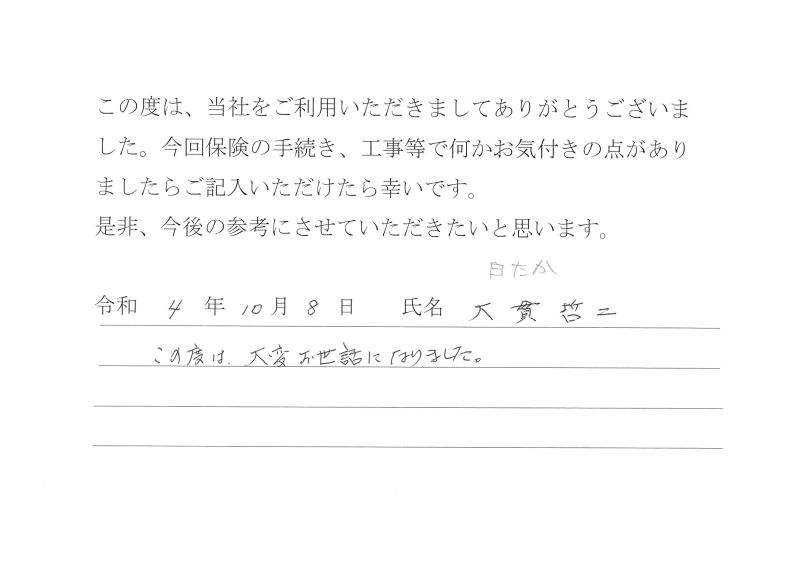 この度は、当社をご利用いただきましてありがとうございま
した。今回保険の手続き、工事等で何かお気付きの点があり
ましたらご記入いただけたら幸いです。
是非、今後の参考にさせていただきたいと思います。
白たか
令和 4 年 10 月 8 日 氏名 大貫哲二
この度は、大変お世話になりました。